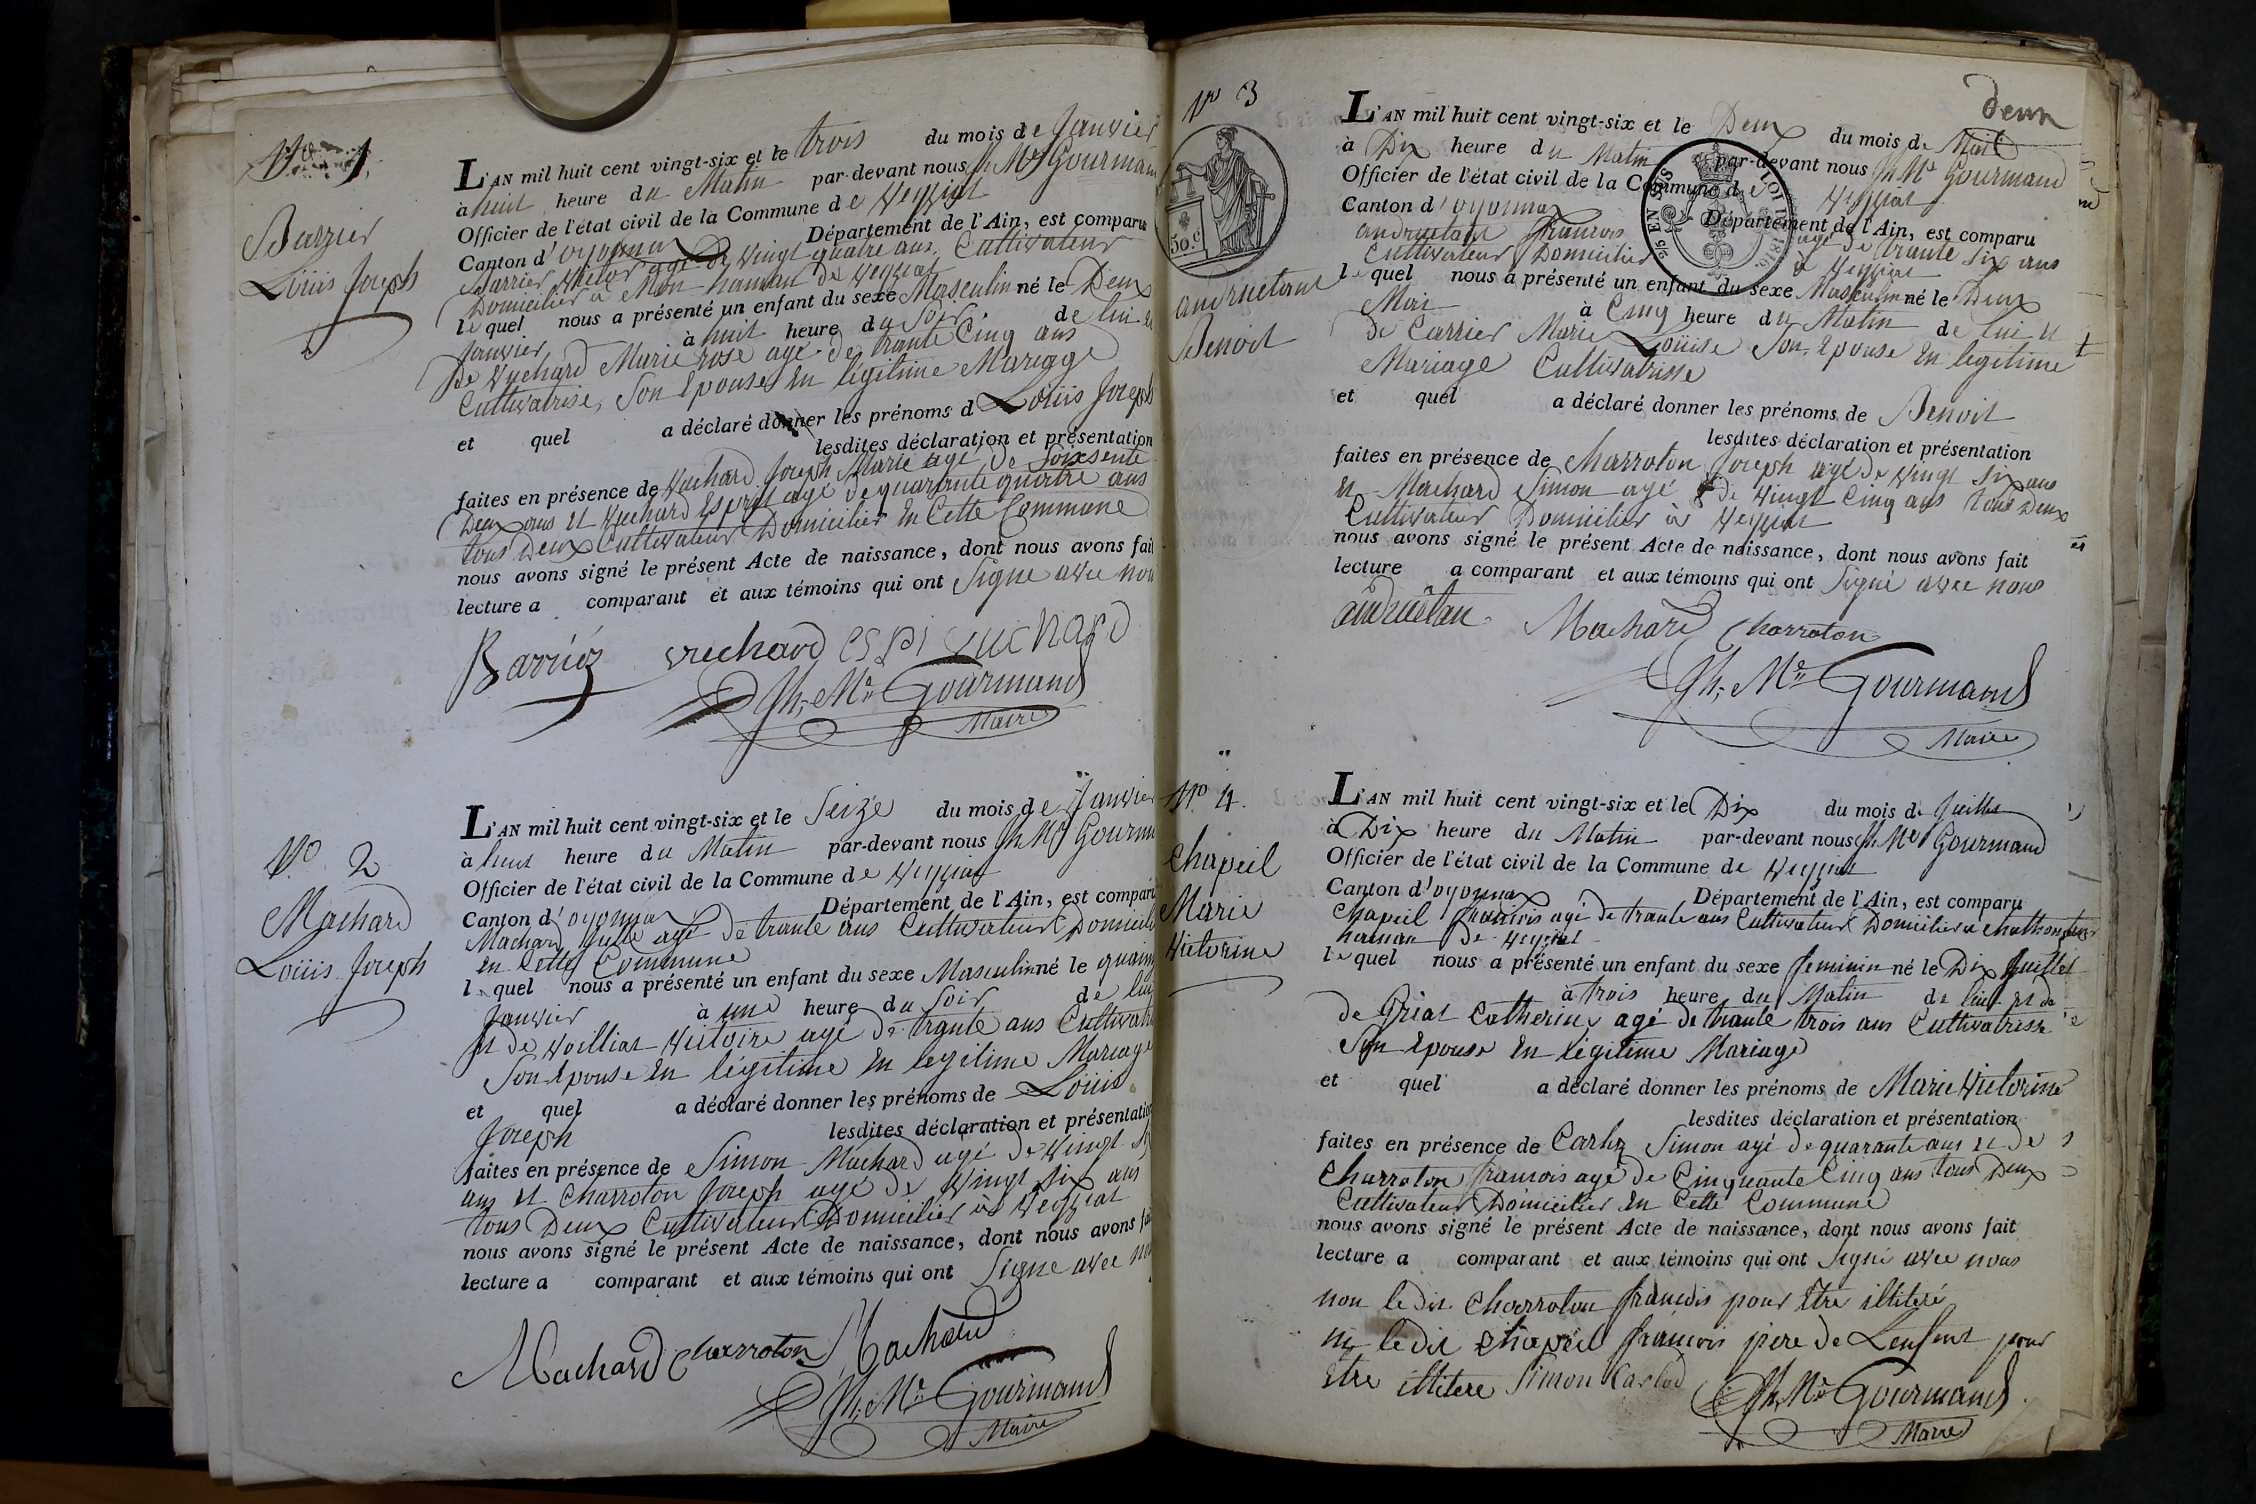 No 1
Barrier
Loüis Joseph
L'AN mil huit cent vingt-six et le trois du mois de Janvier
à huit heure du Matin par-devant nous Jh Me Gourmand
Officier de l'état civil de la Commune de Veyziat
Canton d'oyonna Département de l'Ain, est comparu
Barrier Victor agé de Vingt quatre ans Cultivateur
Domicilier à Mon hamau de Veyziat
lequel nous a présenté un enfant du sexe Masculin né le Deux
Janvier à huit heure du Soir de lui et
De Vuchard Marie rose agé de trante Cinq ans
Cultivatrise, Son Epouse En légitime Mariage
et quel a déclaré donner les prénoms d Loüis Joseph
lesdites déclaration et présentation
faites en présence de Vuchard Joseph Marie agé de Soixsente
Deux ans et Vuchard Esprit agé de quarante quatre ans
tous Deux Cultivateur Domicilier En Cette Commune
nous avons signé le présent Acte de naissance, dont nous avons fait
lecture a comparant et aux témoins qui ont Signe avec nou
Barriéz vuchard espi vuchard
Jh. Me Gourmand
Maire
No 2
Machard
Loüis Joseph
L'AN mil huit cent vingt-six et le Seize du mois de Janvier
à huit heure du Matin par-devant nous Jh Me Gourm
Officier de l'état civil de la Commune de Veyziat
Canton d'oyonna Département de l'Ain, est comparu
Machard agé de trante ans Cultivateur Domicili
En Cette Commune
lequel nous a présenté un enfant du sexe Masculin né le quainz
Janvier à une heure du Soir de lui
Et de Voilliat Victoire agé de trante ans Cultivatri
Son Epouse En légitime En legitime Mariage
et quel a déclaré donner les prénoms de Loüis
Joseph lesdites déclaration et présentation
faites en présence de Simon Machard agé de Vingt
ans et Charroton Joseph agé de Vingt Six ans
tous Deux Cultivateur Domicilier à Veyziat
nous avons signé le présent Acte de naissance, dont nous avons fai
lecture a comparant et aux témoins qui ont Signe avec
Machard Charroton Machard
Jh. Me Gourmand
Maire
deux
No 3
50.c
andruetant
Benoit
L'AN mil huit cent vingt-six et le Deux du mois de Mai
à Dix heure du Matin par-devant nous Jh Me Gourmand
Officier de l'état civil de la Commune de Veyziat
Canton d'oyonnax Département de l'Ain, est comparu
andruetant francois agé de trante Six ans
Cultivateur Domicilier à Veyziat
lequel nous a présenté un enfant du sexe Masculin né le Deux
Mai à Cinq heure du Matin de lui et
de Carrier Marie Loüise Son Epouse En legitime
Mariage Cultivatrisse
et quel a déclaré donner les prénoms de Benoit
lesdites déclaration et présentation
faites en présence de Charroton Joseph agé de Vingt Six ans
et Machard Simon agé de Vingt Cinq ans tous Deux
Cultivateur Domicilier à Veyziat
nous avons signé le présent Acte de naissance, dont nous avons fait
lecture a comparant et aux témoins qui ont Signé avec nous
andruétan Machard Charroton
Jh. Me Gourmand
Maire
No 4.
Chapeil
Marie
Victorine
L'AN mil huit cent vingt-six et le Dix du mois de Juillet
à Dix heure du Matin par-devant nous Jh Me Gourmand
Officier de l'état civil de la Commune de Veyziat
Canton d'oyonnax Département de l'Ain, est comparu
Chapeil francois agé de trante ans Cultivateur Domicilier a
hamau de Veyziat
lequel nous a présenté un enfant du sexe feminin né le Dix Juillet
à trois heure du Matin de lui et de
de Griat Catherine agé de trante trois ans Cultivatrisse
Son Epouse En légitime Mariage
et quel a déclaré donner les prénoms de Marie Victorine
lesdites déclaration et présentation
faites en présence de Simon agé de quarante ans et de
Charroton francois agé de Cinquante Cinq ans tous Deux
Cultivateur Domicilier En Cette Commune
nous avons signé le présent Acte de naissance, dont nous avons fait
lecture a comparant et aux témoins qui ont Signé avec nous
non le dit Charroton francois pour Etre illiteré
ni le dit Chapeil francois pere de Lenfent pour
Etre illitere Simon Carlod
Jh. Me Gourmand
Maire